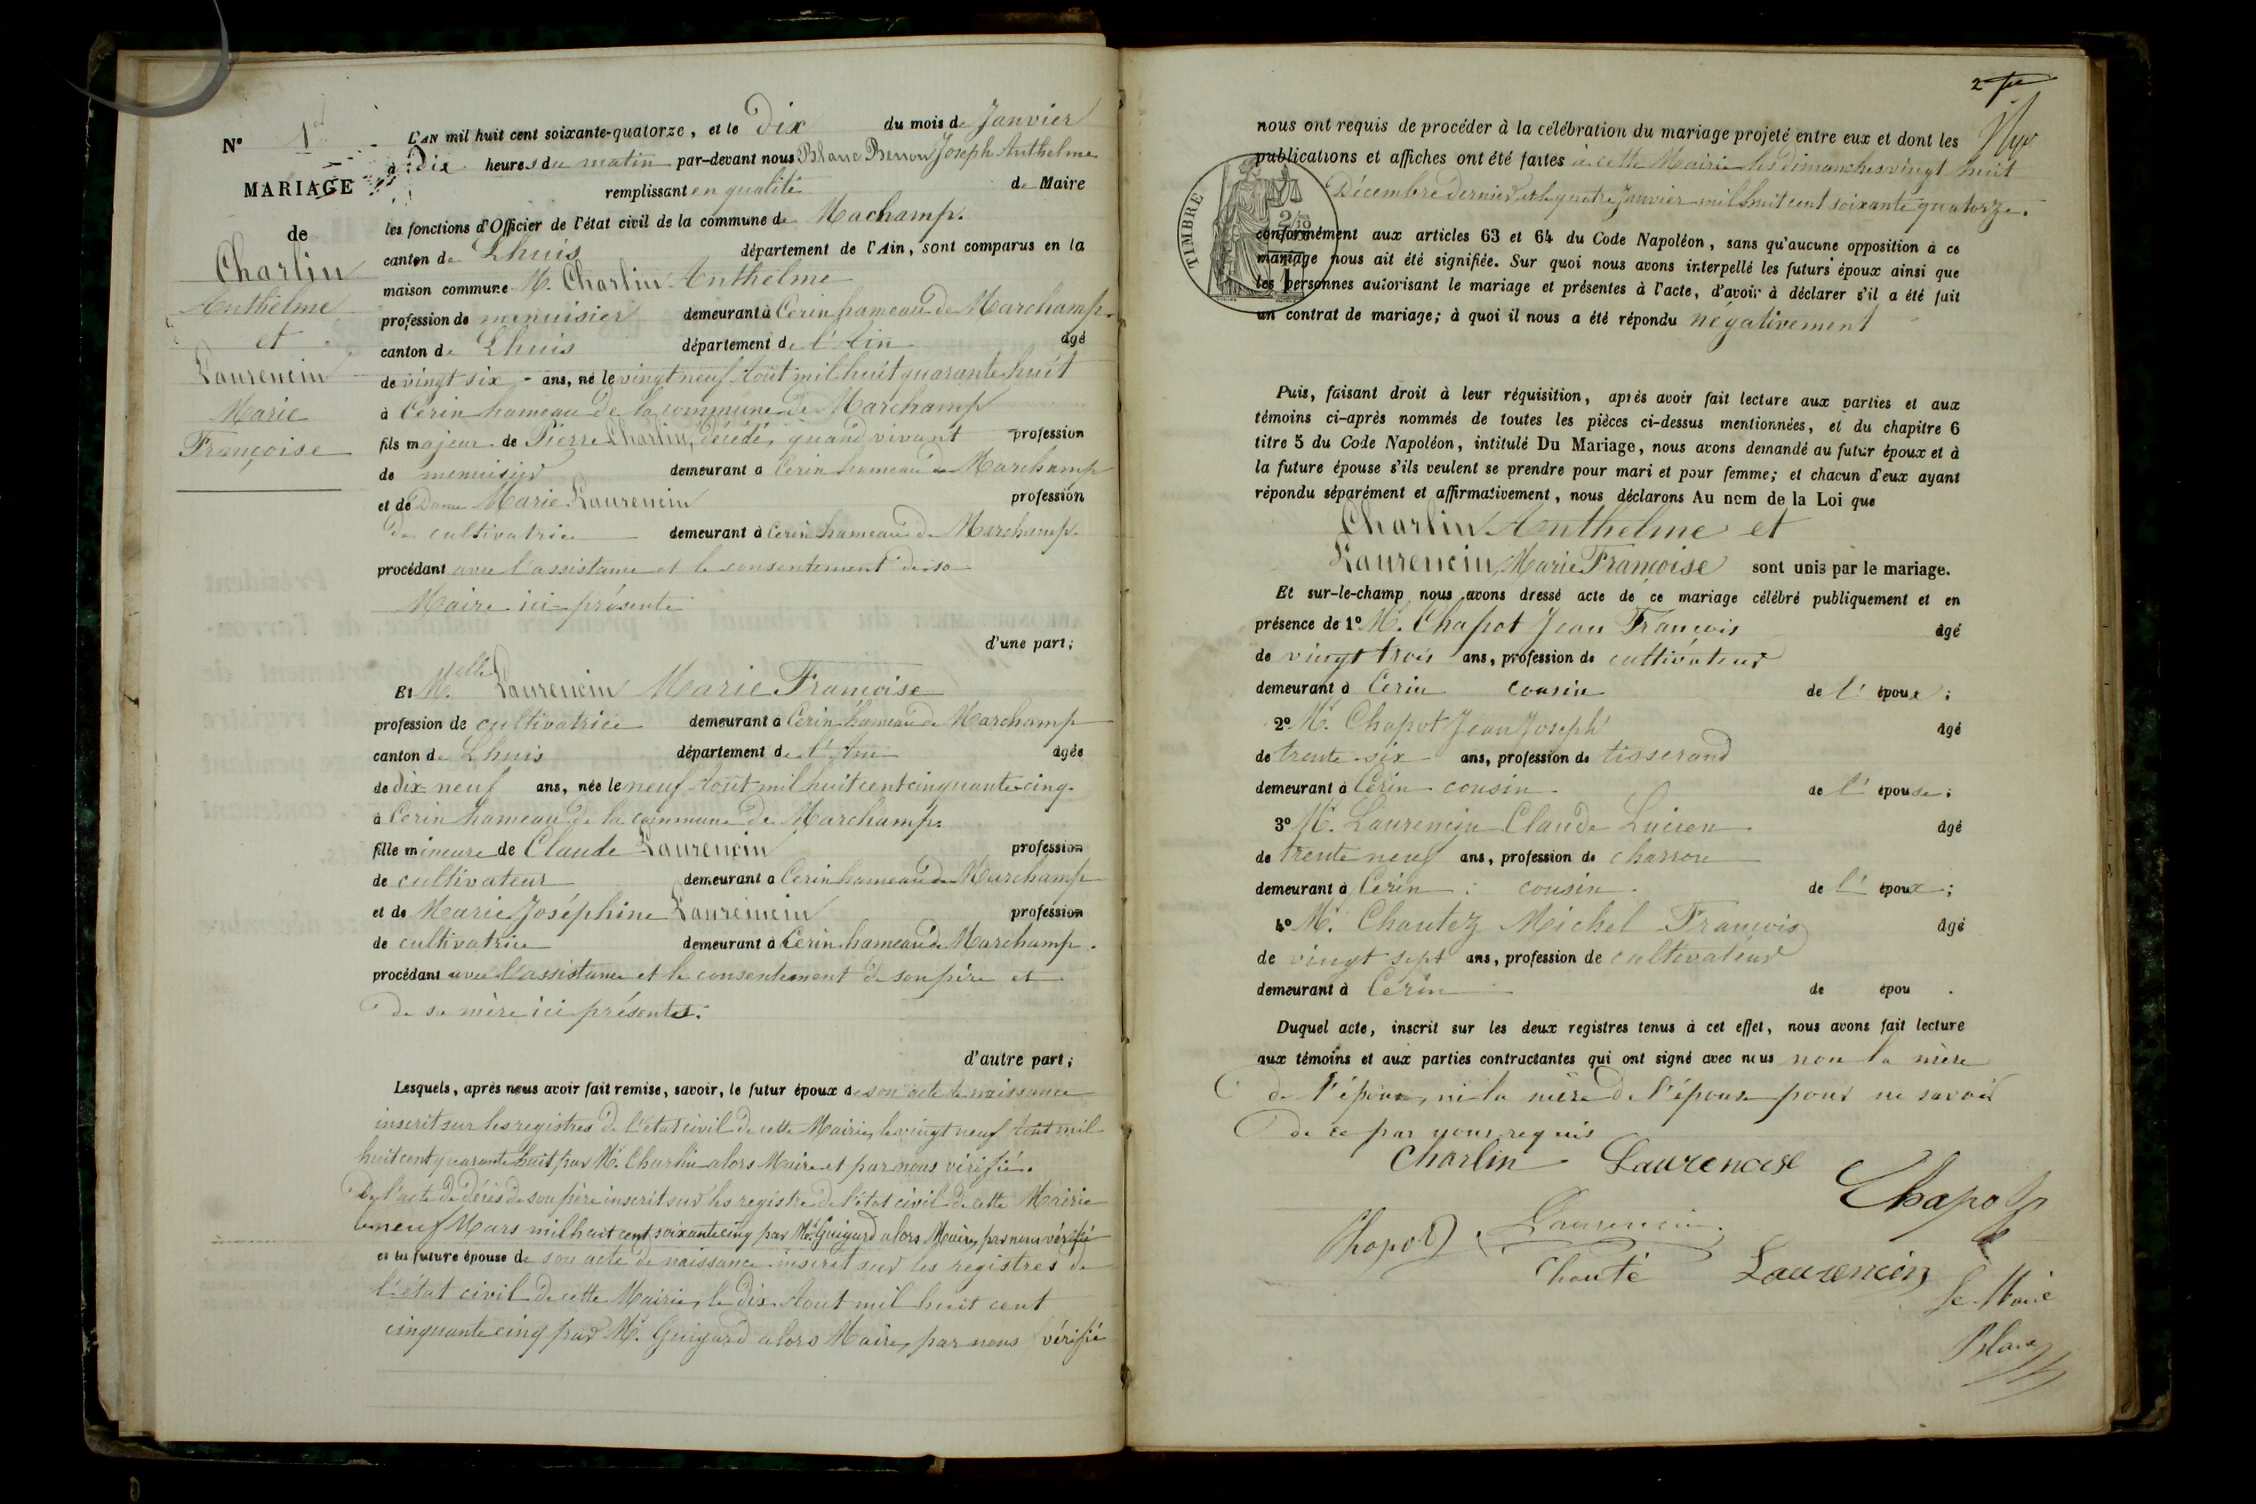 N° 1er
MARIAGE
de
Charlin
Anthelme
et
Laurencin
Marie
Françoise
L'AN mil huit cent soixante-quatorze, et le Dix du mois de Janvier
à Dix heures du matin par-devant nous Blanc Benon Joseph Anthelme
remplissant en qualité de Maire
les fonctions d'Officier de l'état civil de la commune de Machamp.
canton de Lhuis département de l'Ain, sont comparus en la
maison commune M. Charlin Anthelme
profession de menuisier demeurant à Cerin hameau de Marchamp.
canton de Lhuis département de l'Ain âgé
de vingt six - ans, né le vingt neuf Aout mil huit quarante huit
à Cerin hameau de la commune de Marchamp
fils majeur de Pierre Charlin, décédé, quand vivant profession
de menuisier demeurant à Cerin hameau de Marchamp
et de Dame Marie Laurencin profession
de cultivatrice demeurant à Cerin hameau de Marchamp.
procédant avec l'assistance et le consentement de sa
Maire ici présente
d'une part;
Et Melle Laurencin Marie Françoise
profession de cultivatrice demeurant à Cerin hameau de Marchamp
canton de Lhuis département de l'Ain âgée
de dix-neuf ans, née le neuf Aout mil huit cent cinquante-cinq.
à Cerin hameau de la commune de Marchamp.
fille mineure de Claude Laurencin profession
de cultivateur demeurant à Cerin hameau de Marchamp
et de Marie Joséphine Laurencin profession
de cultivatrice demeurant à Cerin hameau de Marchamp.
procédant avec l'assistance et le consentement de son père et
de sa mère ici présentes.
d'autre part;
Lesquels, après nous avoir fait remise, savoir, le futur époux de son acte de naissance
inscrit sur les registres de l'état civil de cette Mairie, le vingt neuf Aout mil
huit cent quarante huit par Mr. Charlin alors Maire et par nous vérifié.
De l'acte de décès de son père inscrit sur les registre de l'état civil de cette Mairie
le neuf Mars mil huit cent soixante cinq par Mr. Guigard alors Maire, par nous vérifié
et la future épouse de son acte de naissance inscrit sur les registres de
l'état civil de cette Mairie, le dix Aout mil huit cent
cinquante cinq par Mr. Guigard alors Maire, par nous vérifié
2
nous ont requis de procéder à la célébration du mariage projeté entre eux et dont les
publications et affiches ont été faites à cette Mairie les dimanches vingt huit
Décembre dernier et le quatre Janvier mil huit cent soixante quatorze.
TIMBRE
conformément aux articles 63 et 64 du Code Napoléon, sans qu'aucune opposition à ce
mariage nous ait été signifiée. Sur quoi nous avons interpellé les futurs époux ainsi que
les personnes autorisant le mariage et présentes à l'acte, d'avoir à déclarer s'il a été fait
un contrat de mariage; à quoi il nous a été répondu négativement
Puis, faisant droit à leur réquisition, après avoir fait lecture aux parties et aux
témoins ci-après nommés de toutes les pièces ci-dessus mentionnées, et du chapitre 6
titre 5 du Code Napoléon, intitulé Du Mariage, nous avons demandé au futur époux et à
la future épouse s'ils veulent se prendre pour mari et pour femme; et chacun d'eux ayant
répondu séparément et affirmativement, nous déclarons Au nom de la Loi que
Charlin Anthelme et
Laurencin Marie Françoise sont unis par le mariage.
Et sur-le-champ nous avons dressé acte de ce mariage célébré publiquement et en
présence de 1° M. Chapot Jean François âgé
de vingt trois ans, profession de cultivateur
demeurant à Cerin cousin de l' époux;
2° M. Chapot Jean Joseph âgé
de trente-six ans, profession de tisserand
demeurant à Cerin cousin de l' épouse;
3° M. Laurencin Claude Lucien âgé
de trente neuf ans, profession de charron
demeurant à Cerin cousin de l' époux;
4° M. Chantez Michel François âgé
de vingt sept ans, profession de cultivateur
demeurant à Cerin de épou .
Duquel acte, inscrit sur les deux registres tenus à cet effet, nous avons fait lecture
aux témoins et aux parties contractantes qui ont signé avec nous non la mère
de l'époux, ni la mère de l'épouse pour ne savoir
de ce par nous requis
Charlin Laurencise
Chapot
Chapot Laurencin
Chanté Laurencin
Le Maire
Blanc